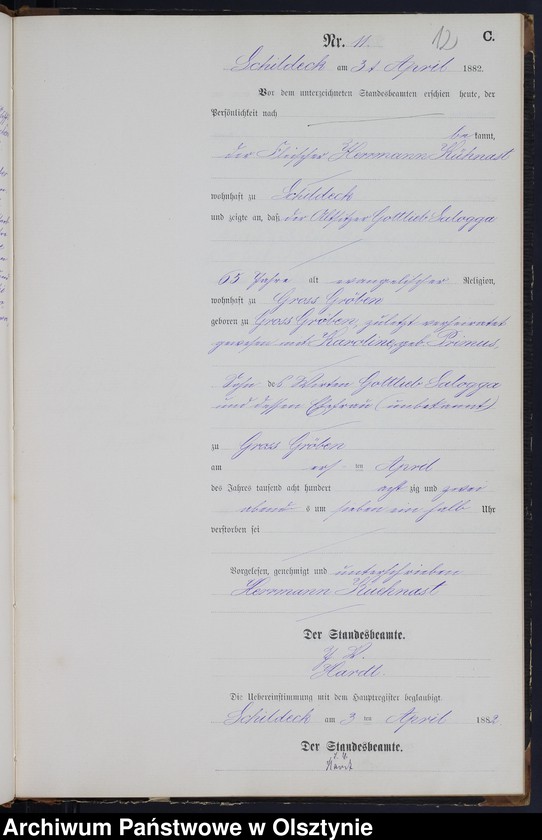 Nr. 11.
12
C.
Schildeck am 3t April 1882.
Vor dem unterzeichneten Standesbeamten erschien heute, der
Persönlichkeit nach
bekannt,
der Fleischer Herrmann Kühnast
wohnhaft zu Schildeck
und zeigte an, daß der Altsitzer Gottlieb Salogga
65 Jahre alt evangelischer Religion,
wohnhaft zu Gross Gröben
geboren zu Gross Gröben, zuletzt verheiratet
gewesen mit Karoline, geb. Primus,
Sohn des Wirten Gottlieb Salogga
und dessen Ehefrau (unbekannt)
zu Gross Gröben
am ersten April
des Jahres tausend acht hundert achtzig und zwei
abends um sieben ein halb Uhr
verstorben sei
Vorgelesen, genehmigt und unterschrieben
Herrmann Kuehnast
Der Standesbeamte.
Hardt.
Die Uebereinstimmung mit dem Hauptregister beglaubigt
Schildeck am 3ten April 1882
Der Standesbeamte.
Hardt
Archiwum Państwowe w Olsztynie